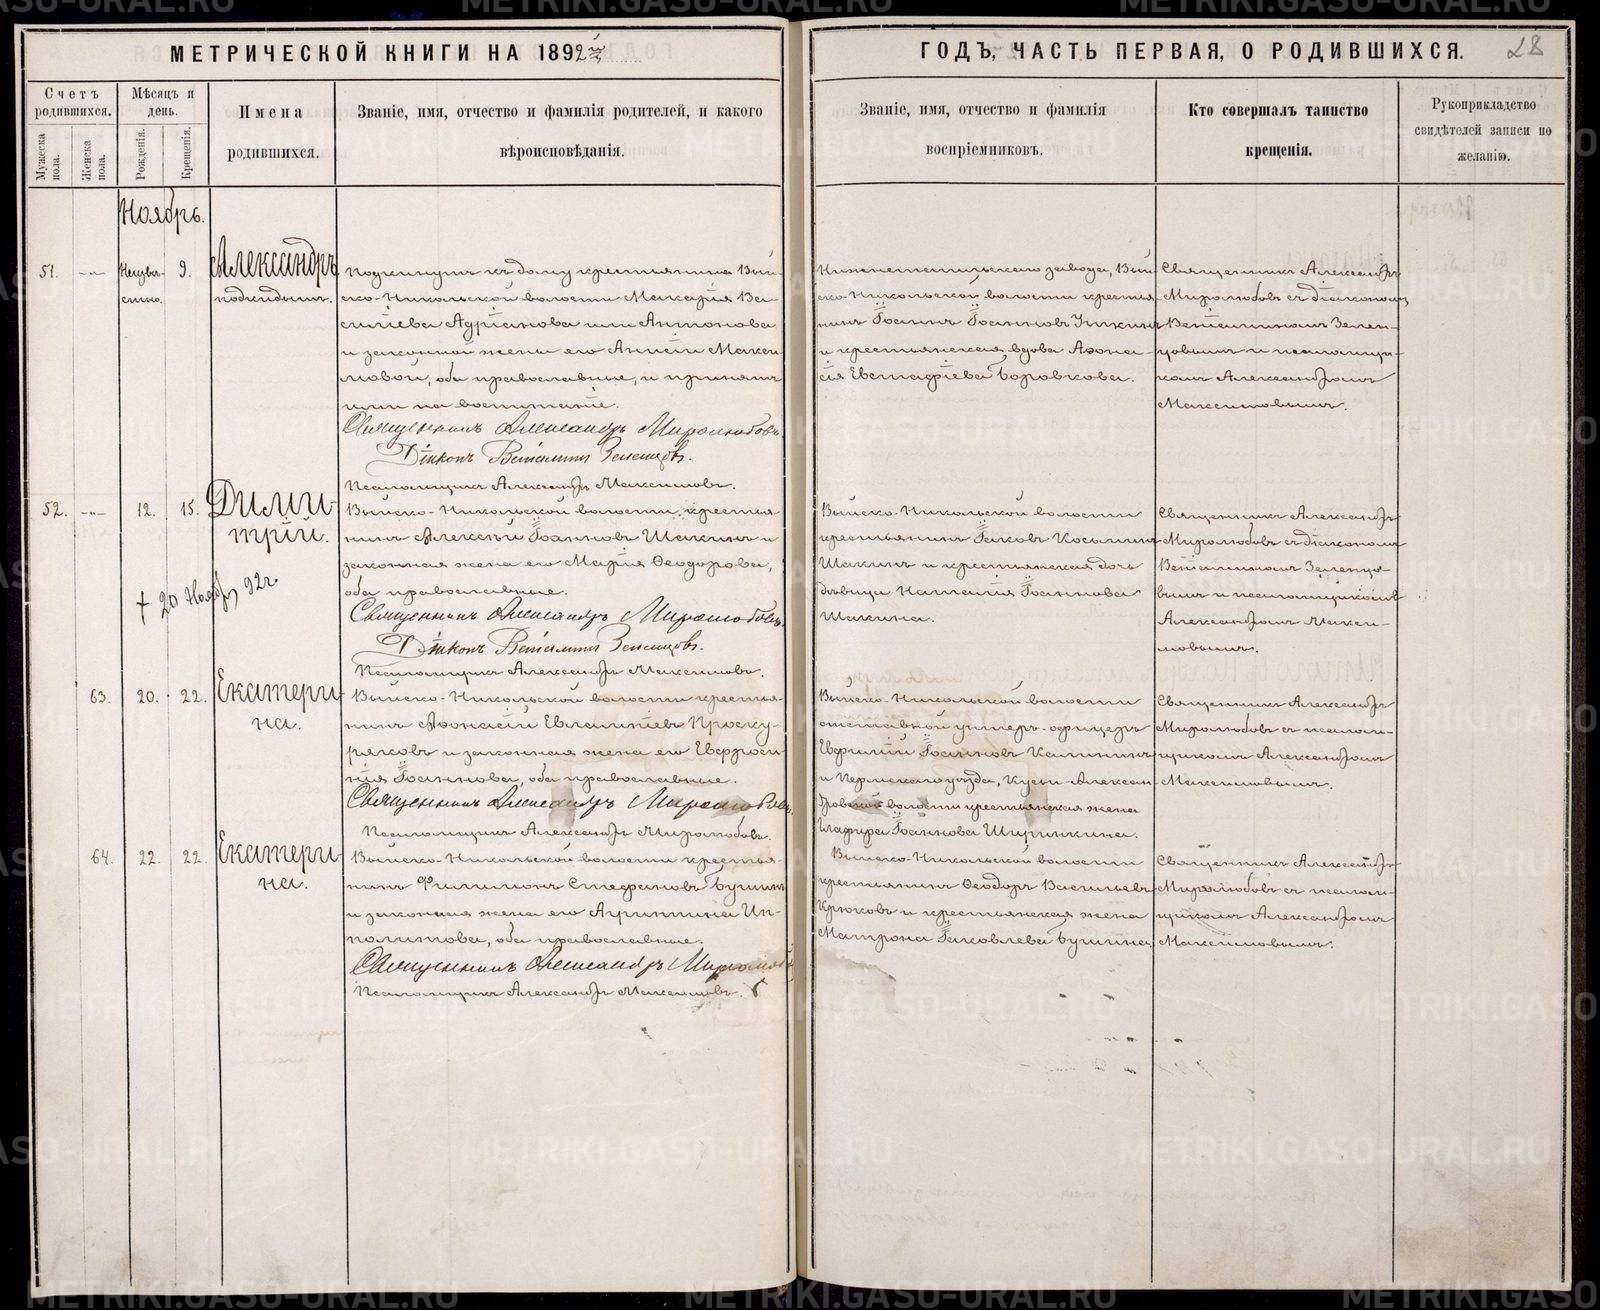 МЕТРИЧЕСКОЙ КНИГИ НА 1892й
ГОДЪ, ЧАСТЬ ПЕРВАЯ, О РОДИВШИХСЯ.
28
Счетъ родившихся.
Мужеска пола.
Женска пола.
Мѣсяцъ и день.
Рожденія.
Крещенія.
Имена родившихся.
Званіе, имя, отчество и фамилія родителей, и какого
вѣроисповѣданія.
Званіе, имя, отчество и фамилія
воспріемниковъ.
Кто совершалъ таинство
крещенія.
Рукоприкладство
свидѣтелей записи по
желанію.
Ноябрь.
51.
Неизвѣ-
стно.
9.
Александръ
подкидышъ.
Подкинутъ къ дому крестьянина Вый-
ско-Никольской волости Макарія Ва-
силіева Адріанова или Антонова
и законной жены его Анисіи Макси-
мовой, оба православные, и принятъ
ими на воспитаніе.
Священникъ Александръ Миролюбовъ
Діаконъ Веніаминъ Зеленцовъ.
Псаломщикъ Александръ Максимовъ.
Нижнетагильскаго завода, Вый-
ско-Никольской волости крестья-
нинъ Іоаннъ Іоанновъ
и крестьянская вдова Афана-
сія Евстафіева Боровкова.
Священникъ Александръ
Миролюбовъ съ діакономъ
Веніаминомъ Зелен-
цовымъ и псаломщи-
комъ Александромъ
Максимовымъ.
52.
12.
15.
Дими-
трій.
† 20 Ноябр. 92 г.
Выйско-Никольской волости крестья-
нинъ Алексѣй Іоанновъ Шакинъ и
законная жена его Марія Ѳеодорова,
оба православные.
Священникъ Александръ Миролюбовъ.
Діаконъ Веніаминъ Зеленцовъ.
Псаломщикъ Александръ Максимовъ.
Выйско-Никольской волости
крестьянинъ Іаковъ Косьминъ
Шакинъ и крестьянская дочь
дѣвица Наталія Іоаннова
Шакина.
Священникъ Александръ
Миролюбовъ съ діакономъ
Веніаминомъ Зеленцо-
вымъ и псаломщикомъ
Александромъ Макси-
мовымъ.
63.
20.
22.
Екатери-
на.
Выйско-Никольской волости крестья-
нинъ Афанасій Евлампіевъ Проску-
ряковъ и законная жена его Евфроси-
нія Іоаннова, оба православные.
Священникъ Александръ Миролюбовъ.
Псаломщикъ Александръ Миролюбовъ.
Выйско-Никольской волости
отставной унтеръ-офицеръ
Іоанновъ Калининъ
и Пермскаго уѣзда, Кусье-Алексан-
дровской волости крестьянская жена
Глафира Іоаннова
Священникъ Александръ
Миролюбовъ съ псалом-
щикомъ Александромъ
Максимовымъ.
64.
22.
22.
Екатери-
на.
Выйско-Никольской волости крестья-
нинъ Филимонъ Стефановъ Бушинъ
и законная жена его Агриппина Ип-
политова, оба православные.
Священникъ Александръ Миролюбовъ
Псаломщикъ Александръ Максимовъ.
Выйско-Никольской волости
крестьянинъ Ѳеодоръ Васильевъ
Крюковъ и крестьянская жена
Матрона Іаковлева Бушина.
Священникъ Александръ
Миролюбовъ съ псалом-
щикомъ Александромъ
Максимовымъ.
METRIKI.GASO-URAL.RU